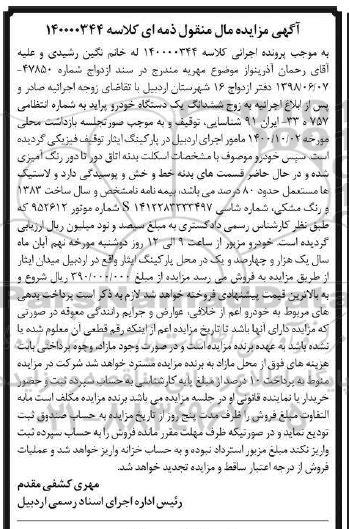 آگهی مزایده مال منقول ذمه ای کلاسه ۱۴۰۰۰۰۳۴۴
به موجب پرونده اجرائی کلاسه ۱۴۰۰۰۰۳۴۴ له خانم نگین رشیدی و علیه
آقای رحمان آذرینواز موضوع مهریه مندرج در سند ازدواج شماره ۴۷۸۵۰-
۱۳۹۸/۰۶/۰۷ دفتر ازدواج ۱۶ شهرستان اردبیل با تقاضای زوجه اجرائیه صادر و
پس از ابلاغ اجرائیه به زوج ششدانگ یک دستگاه خودرو پراید به شماره انتظامی
۷۵۷ ه ۳۳- ایران ۹۱ شناسایی، توقیف و به موجب صورتجلسه بازداشت محلی
مورخه ۱۴۰۰/۱۰/۰۲ مامور اجرای اردبیل در پارکینگ ایثار توقیف فیزیکی گردیده
است. سپس خودرو موصوف با مشخصات اسکلت بدنه اتاق دور تا دور رنگ آمیزی
شده و در حال حاضر قسمت های بدنه خط و خش و پوسیدگی دارد و لاستیک
ها مستعمل حدود ۸۰ درصد می باشد، بیمه نامه نامشخص و سال ساخت ۱۳۸۳
و رنگ مشکی، شماره شاسی S ۱۴۱۲۲۸۳۲۳۳۴۹۷ شماره موتور ۹۵۲۶۱۲ که
طبق نظر کارشناس رسمی دادگستری به مبلغ سیصد و نود میلیون ریال ارزیابی
گردیده است. خودرو مزبور از ساعت ۹ الی ۱۲ روز دوشنبه مورخه نهم آبان ماه
سال یک هزار و چهارصد و یک در محل پارکینگ ایثار واقع در اردبیل میدان ایثار
از طریق مزایده به فروش می رسد مزایده از مبلغ ۳۹۰/۰۰۰/۰۰۰ ریال شروع و
به بالاترین قیمت پیشنهادی فروخته خواهد شد لازم به ذکر است پرداخت بدهی
های مربوط به خودرو اعم از خلافی، عوارض و جرایم رانندگی معوقه در صورتی
که مزایده دارای آنها باشد تا تاریخ مزایده اعم از اینکه رقم قطعی آن معلوم شده یا
نشده باشد به عهده برنده مزایده است و در صورت وجود مازاد، وجوه پرداختی بابت
هزینه های فوق از محل مازاد به برنده مزایده مسترد خواهد شد شرکت در مزایده
منوط به پرداخت ۱۰ درصد از مبلغ پایه کارشناسی به حساب سپرده ثبت و حضور
خریدار یا نماینده قانونی او در جلسه مزایده می باشد برنده مزایده مکلف است مابه
التفاوت مبلغ فروش را ظرف مدت پنج روز از تاریخ مزایده به حساب صندوق ثبت
تودیع نماید و در صورتیکه ظرف مهلت مقرر مانده فروش را به حساب سپرده ثبت
واریز نکند مبلغ مزبور استرداد نبوده و به حساب خزانه واریز خواهد شد و عملیات
فروش از درجه اعتبار ساقط و مزایده تجدید خواهد شد.
مهری کشفی مقدم
رئیس اداره اجرای اسناد رسمی اردبیل